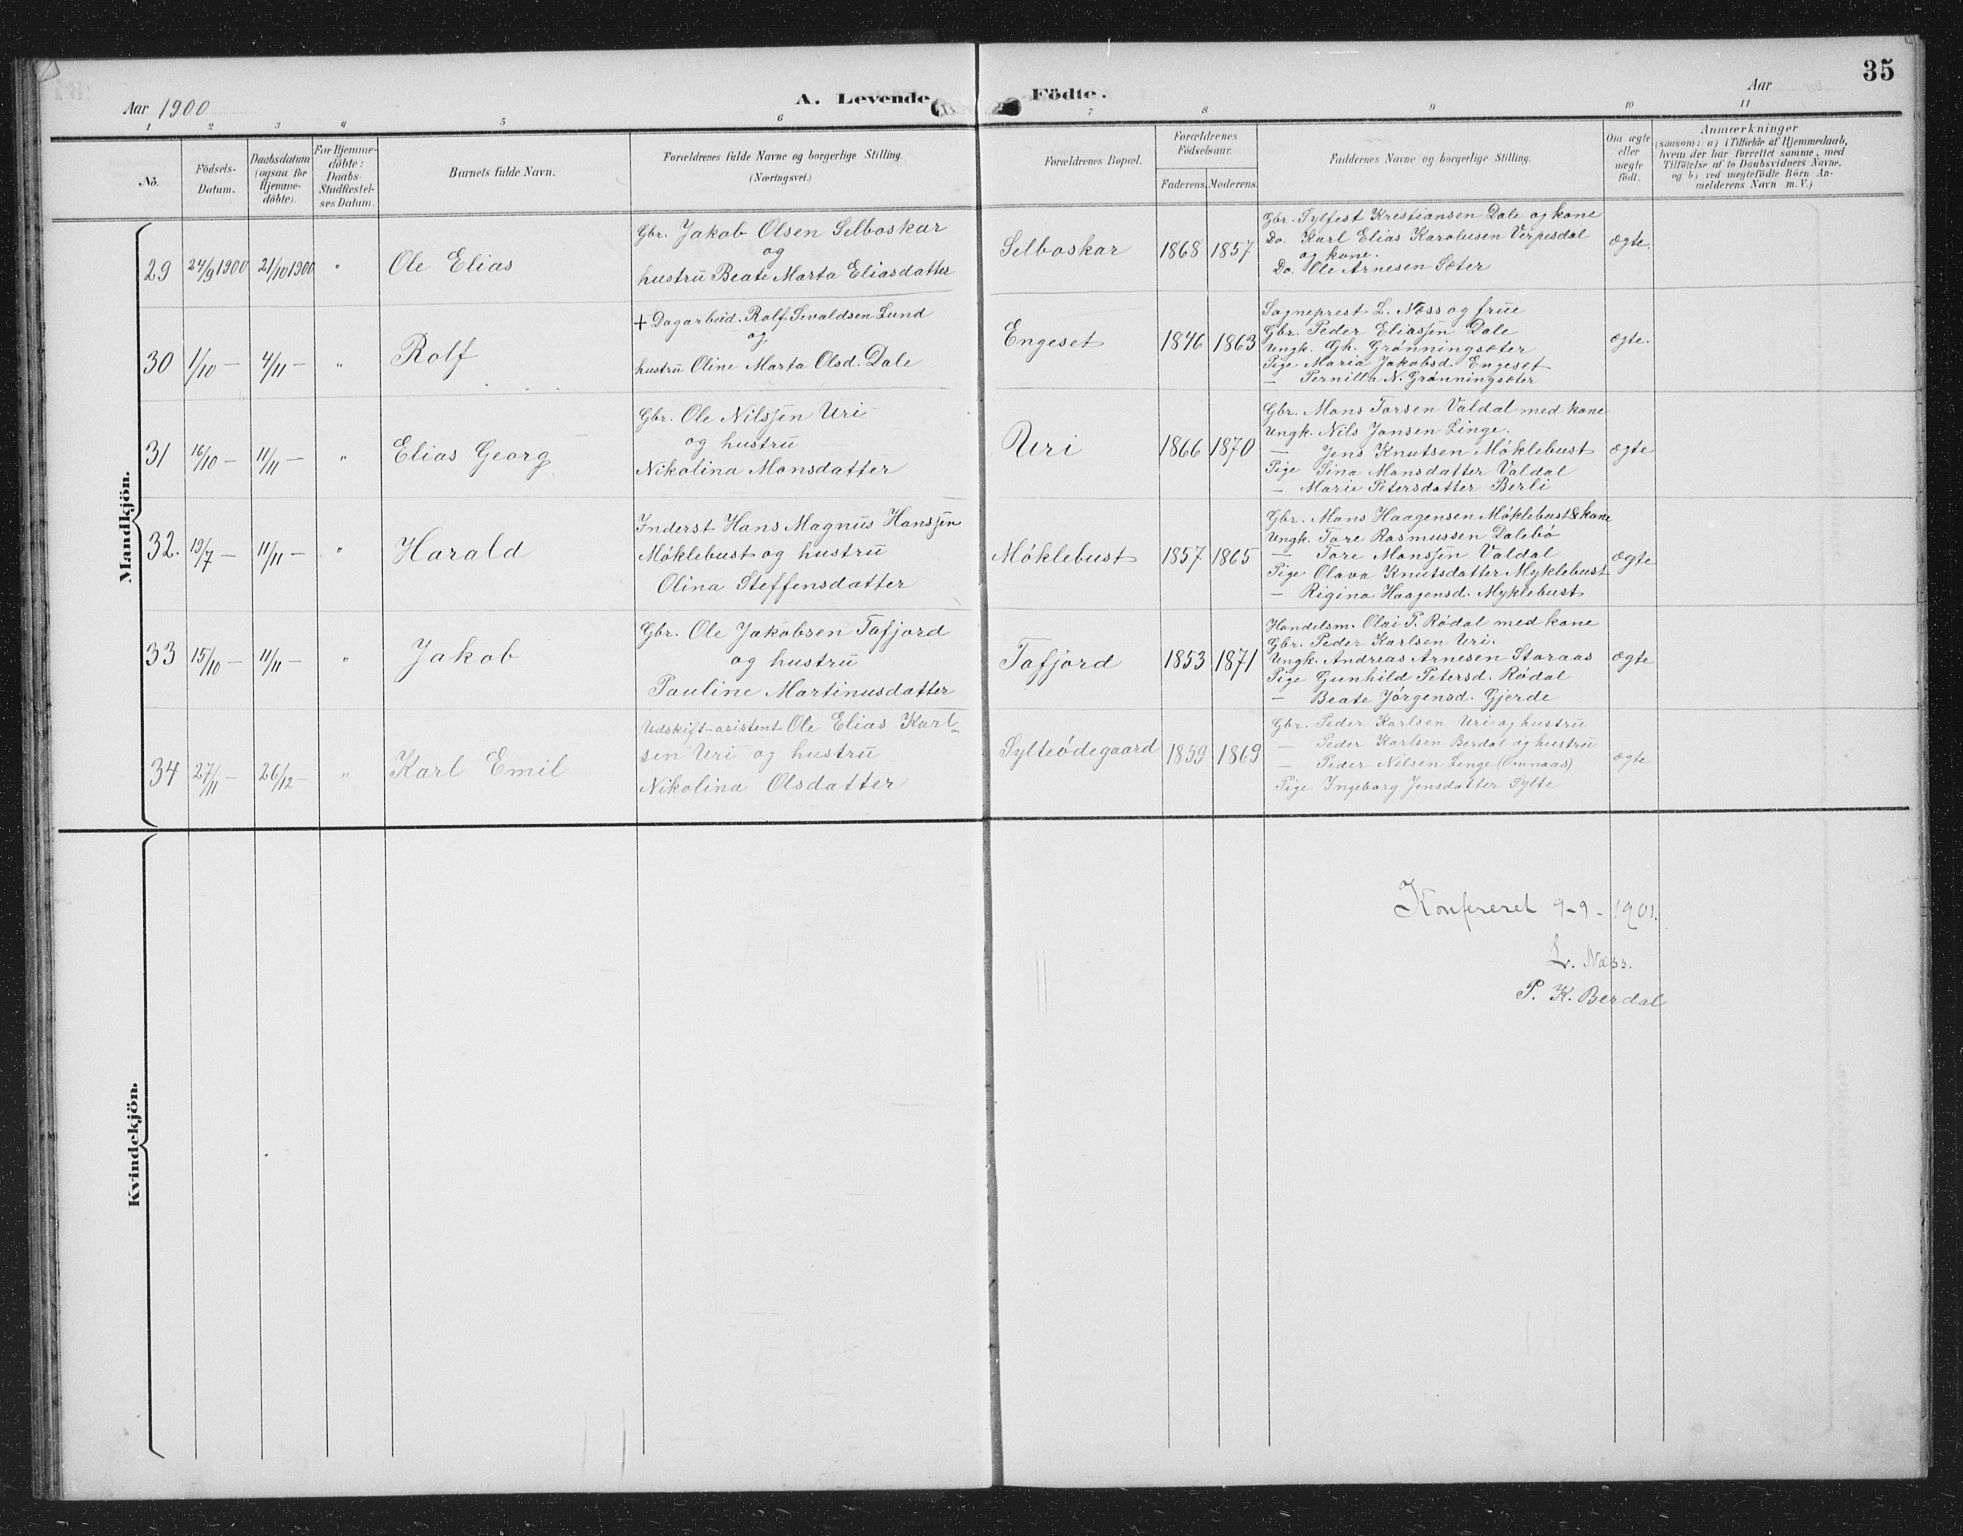 35
Aar 1900
A. Levende Födte.
Aar
1 2 3 4 5 6 7 8 9 10 11
No.
Födsels-
Datum.
Daabsdatum
(ogsaa for
Hjemme-
döbte).
For Hjemme-
döbte:
Daabs-
Stadfæstel-
ses Datum.
Barnets fulde Navn.
Forældrenes fulde Navne og borgerlige Stilling.
(Næringsvei.)
Forældrenes Bopæl.
Forældrenes
Födselsaar.
Faderens. Moderens.
Faddernes Navne og borgerlige Stilling.
Om ægte
eller
uægte
födt.
Anmærkninger
(saasom: a) i Tilfælde af Hjemmedaab,
hvem der har forrettet samme, med
Tilföielse af to Daabsvidners Navne,
og b) ved uægtefödte Börn An-
melderens Navn m. V.)
Mandkjön.
29 24/9 1900 21/10 1900 " Ole Elias
Gbr. Jakob Olsen Selboskar
og
hustru Beate Marta Eliasdatter
Selboskar 1868 1857
Gbr. Sylfest Kristiansen Dale og kone
Do. Karl Elias Karolusen Verpesdal
og kone.
Do. Ole Arnesen Sæter
ægte.
30 1/10 — 4/11 — " Rolf
+ Dagarbeid. Rolf Sivaldsen Lund
og
hustru Oline Marta Olsd. Dale
Engeset 1846 1863
Sogneprest L. Næss og frue
Gbr. Peder Eliassen Dale
Ungk. Gh. Grønningsæter
Pige Maria Jakobsd. Engeset
— Pernilla N. Grønningsæter
ægte.
31 16/10 — 11/11 — " Elias Georg
Gbr. Ole Nilssen Uri
og hustru
Nikolina Monsdatter
Uri 1866 1870
Gbr. Mons Torsen Valdal med kone
Ungk. Nils Jonsen Linge.
— Jens Knutsen Møklebust
Pige Sina Monsdatter Valdal
— Marie Petersdatter Berli
ægte
32. 19/7 — 11/11 — " Harald
Inderst Hans Magnus Hanssen
Møklebust og hustru
Olina Steffensdatter
Møklebust 1857 1865
Gbr. Mons Haagensen Møklebust & kone
Ungk. Tore Rasmussen Dalebø
— Tore Monssen Valdal
Pige Olava Knutsdatter Myklebust
— Rigina Haagensd. Myklebust
ægte
33 15/10 — 11/11 — " Jakob
Gbr. Ole Jakobsen Tafjord
og hustru
Pauline Martinusdatter
Tafjord 1853 1871
Handelsm. Olai P. Rødal med kone
Gbr. Peder Karlsen Uri.
Ungk. Andreas Arnesen Storaas
Pige Gunhild Petersd. Rødal
— Beate Jørgensd. Gjerde
ægte
34 27/11 — 26/12 — " Karl Emil
Udskift-asistent Ole Elias Karl-
sen Uri og hustru
Nikolina Olsdatter
Sylteødegaard 1859 1869
Gbr. Peder Karlsen Uri og hustru
— Peder Karlsen Berdal og hustru
— Peder Nilsen Linge (Omnaas)
Pige Ingeborg Jensdatter Sylte
ægte
Kvindekjön.
Konfereret 9-9-1901.
L. Næss.
P. K. Berdal